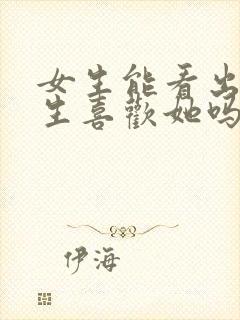 女生能看出
生喜歡她吗
伊海